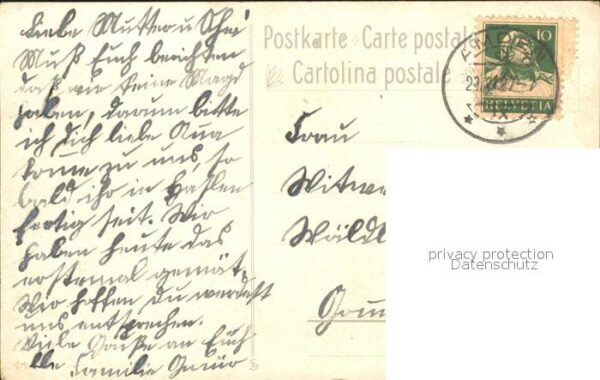 Liebe Mutter u
Muß Euch berichten
daß wir keine Magd
haben, darum bitte
ich Dich liebe
komme zu uns, so
bald ihr in
fertig seit. Wir
haben heute das
erstemal gemäht.
Wir hoffen du werdest
uns entsprechen.
Viele Grüße an Euch
alle Familie
Postkarte - Carte postale
Cartolina postale
10
HELVETIA
Frau
Witwe
Wäldl
privacy protection
Datenschutz